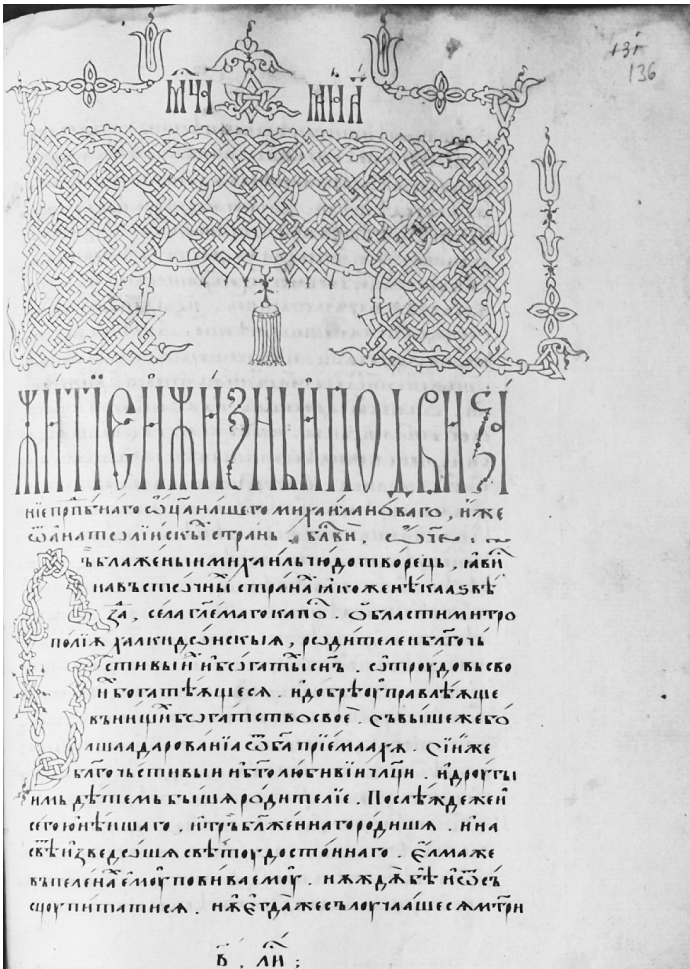 131
136
мⷭ҇ца маїа
житїе и жизнь и подвиѕа
нїе прⷣпбнаго ѿца нашего михаила новаго, иже
ѿ анатолїискыⷯ странь. блⷭ҇ви, ѿче
съ блаженыи михаиль чюдотворець, ꙗви
на въсточныⷯ странаⷯ ꙗкоже нѣкаа ѕвѣ
села гл҃емаго области митро
полїѧ халкидѡнскыѧ, родителеи блг҃очь
стивыⷯ и бѡгатыⷯ сн҃ъ. ѿ троудовь сво
иⷯ богатѣѧщесѧ. и добрѣ оуправлѣѧще
къ нищиⷨ бѡгатство свое. съвыше же бо
лшаа дарованїа ѿ ба҃ прїемаахѫ. сїи же
блг҃очьстивыи и бг҃олюбивїи и дроугы
имь дѣтемь бышѧ родителїе. послѣжде же и
сего юнѣишаго, и трьблаженнаго родишѧ. и на
свѣⷮ изведѡшѧ свѣтоу достоинаго. елма же
въ пеленаⷯ емоу повиваемоу. нѫждⷣа бѣ и ѿ съ
сцоу питатисѧ. нѫ егда же сълоучаашесѧ мт҃ри